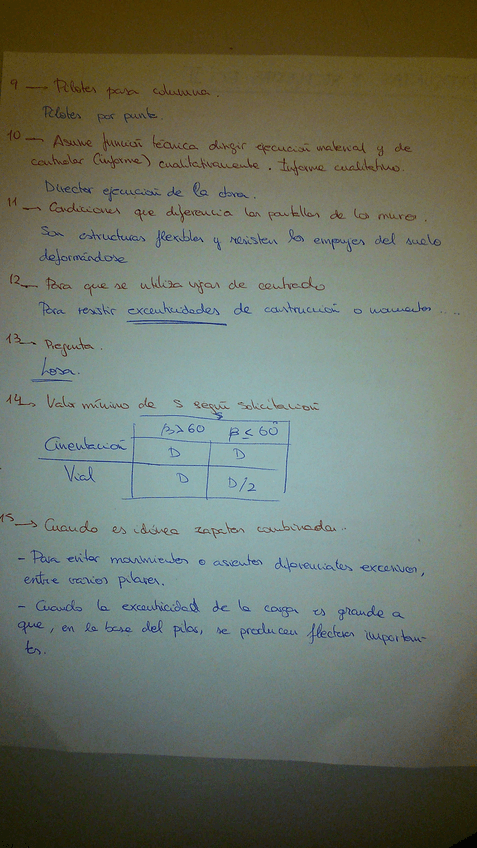 9 → Pilotes para columna.
Pilotes por punta.
10 → Asume función técnica dirigir ejecución material y de
controlar (informe) cualitativamente. Informe cualitativo.
Director ejecución de la obra.
11 → Condiciones que diferencia las pantallas de los muros.
Son estructuras flexibles y resisten los empujes del suelo
deformándose
12 → Para que se utiliza vigas de centrado
Para resistir excentricidades de construcción o momentos ....
13 → Pregunta.
Losa.
14 → Valor mínimo de S según solicitación
β>60 β ≤ 60
Cimentación D D
Vial D D/2
15 → Cuando es idónea zapatas combinadas..
- Para evitar movimientos o asientos diferenciales excesivos,
entre varios pilares.
- Cuando la excentricidad de la carga es grande a
que, en la base del pilar, se producen flectores importan-
tes.